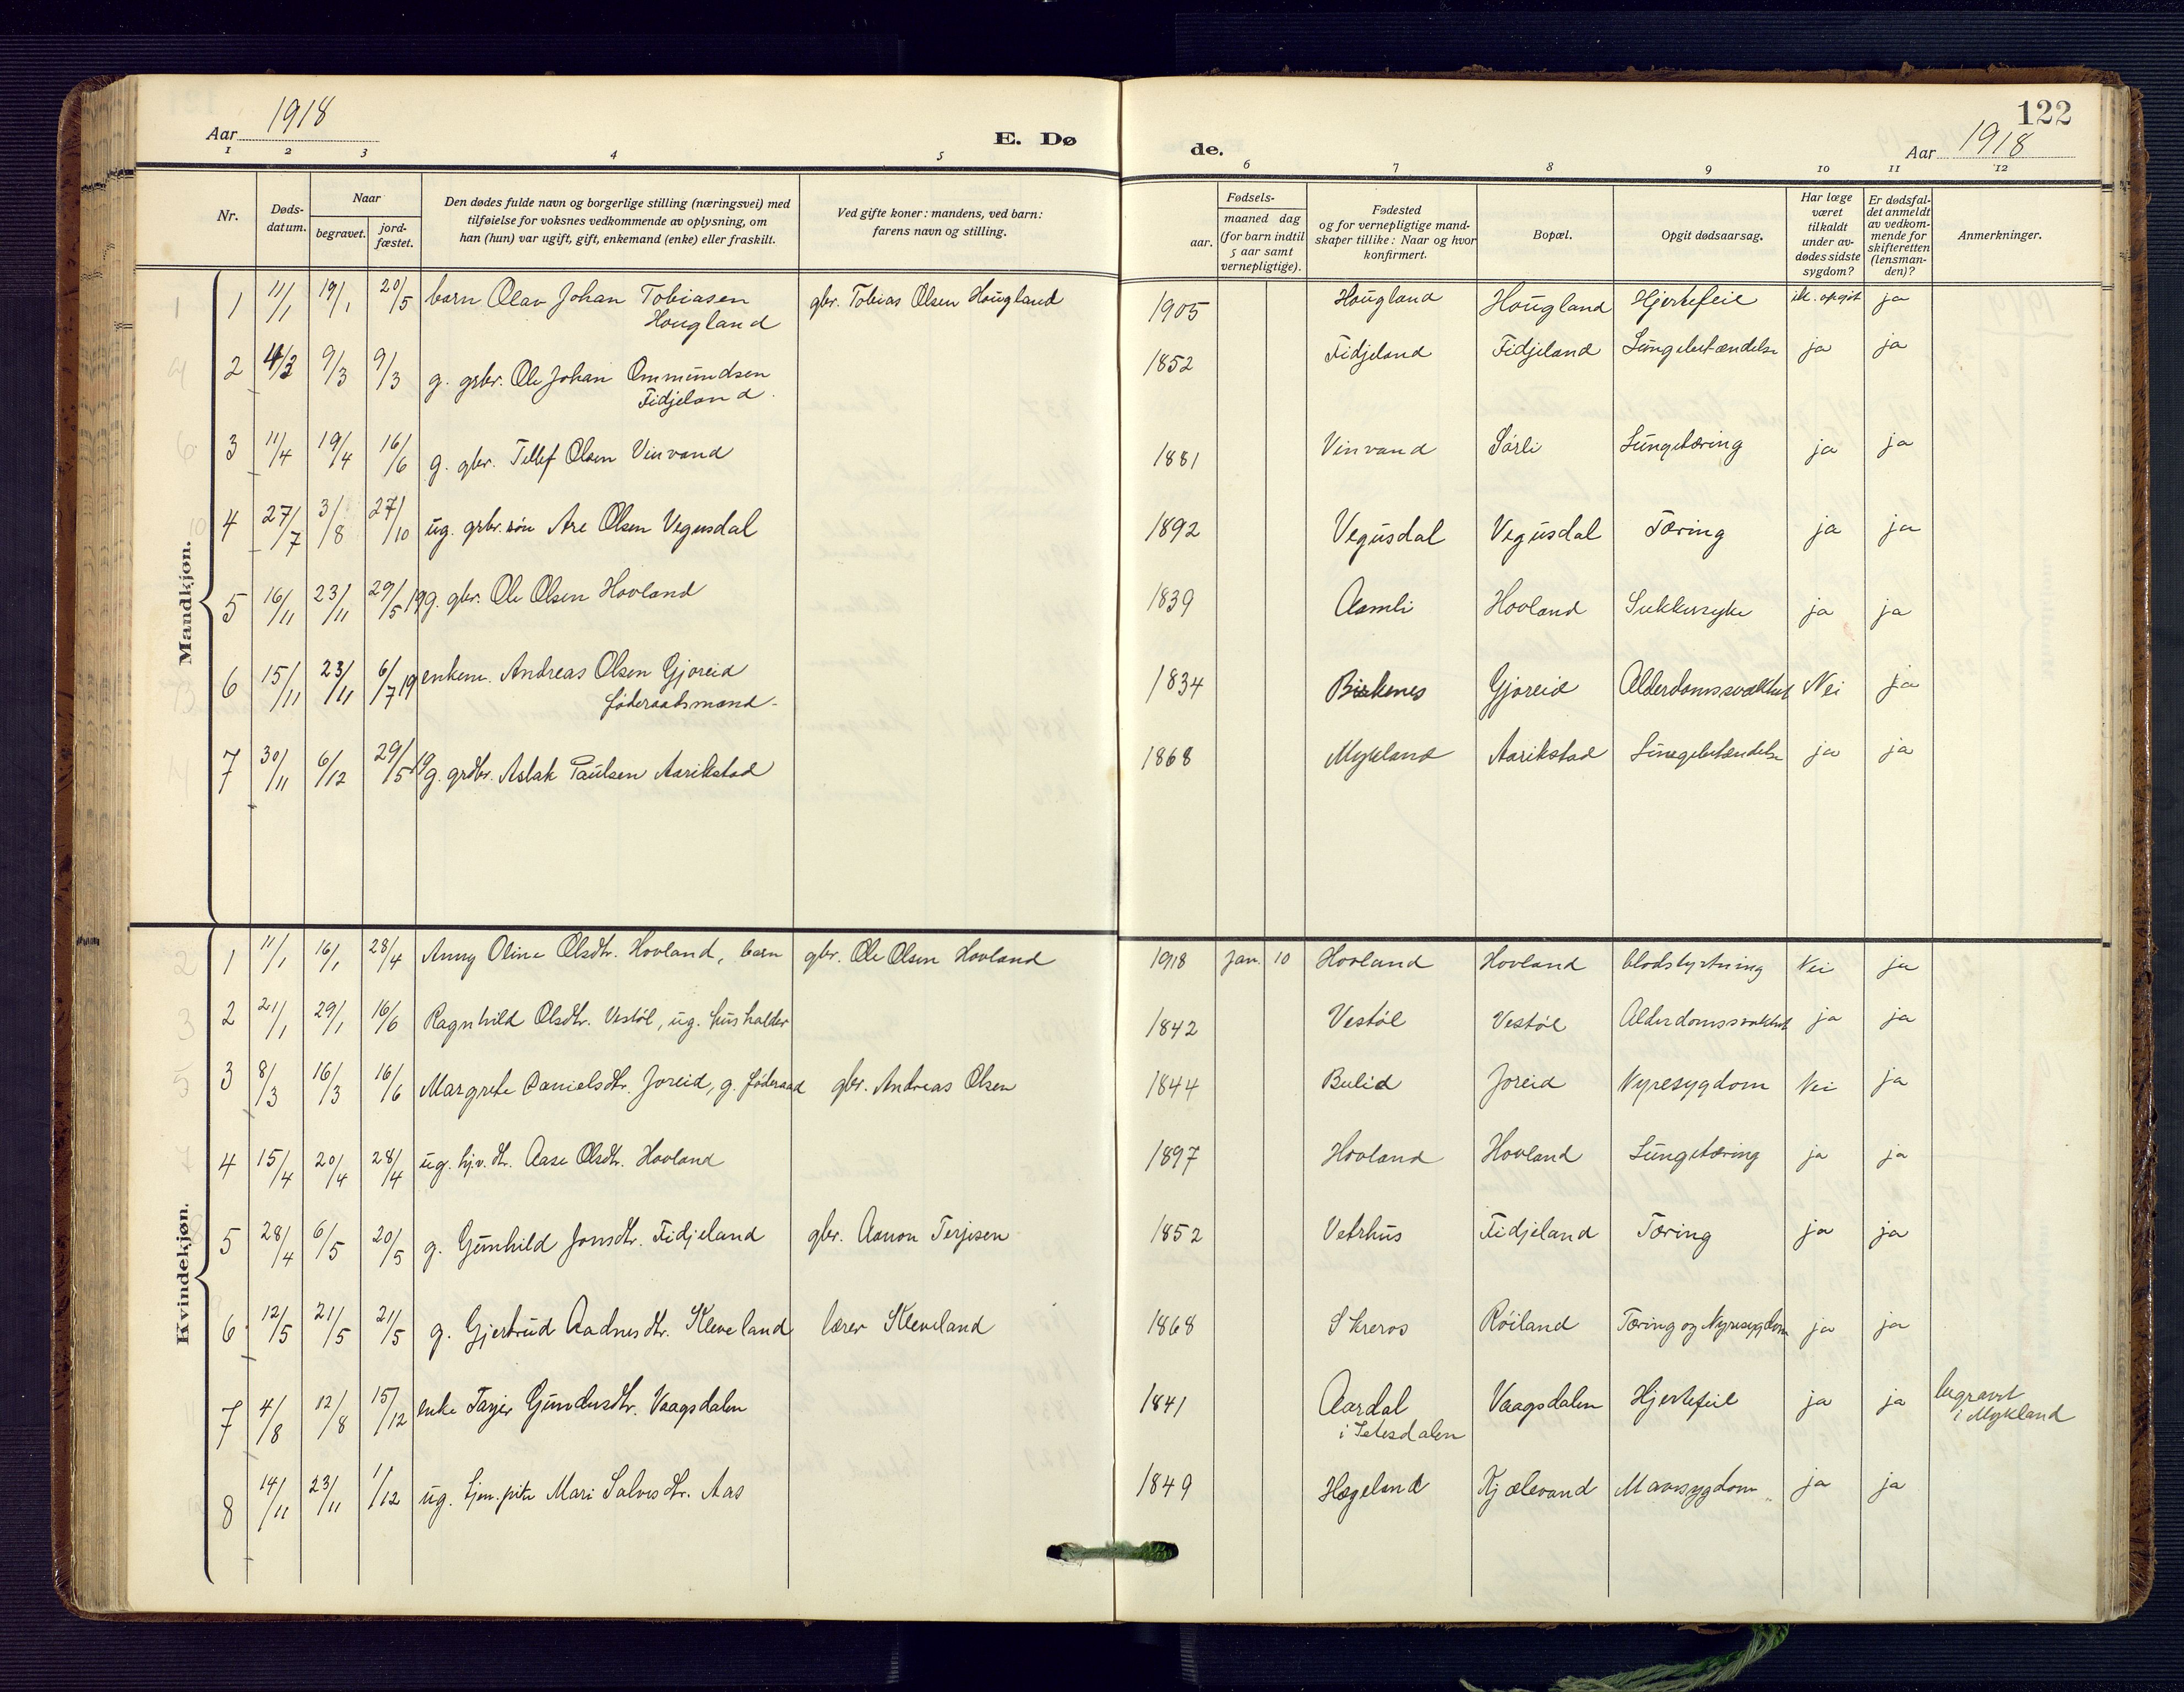 122
Aar 1918
E. Dø
de.
Aar 1918
1 2 3 4 5
6 7 8 9 10 11 12
Nr.
Døds-
datum.
Naar
begravet.
jord-
fæstet.
Den dødes fulde navn og borgerlige stilling (næringsvei) med
tilføielse for voksnes vedkommende av oplysning, om
han (hun) var ugift, gift, enkemand (enke) eller fraskilt.
Ved gifte koner: mandens, ved barn:
farens navn og stilling.
Fødsels-
aar.
maaned dag
(for barn indtil
5 aar samt
vernepligtige).
Fødested
og for vernepligtige mand-
skaper tillike: Naar og hvor
konfirmert.
Bopæl.
Opgit dødsaarsag.
Har læge
været
tilkaldt
under av-
dødes sidste
sygdom?
Er dødsfal-
det anmeldt
av vedkom-
mende for
skifteretten
(lensman-
den)?
Anmerkninger.
Mandkjøn.
1 11/1 19/1 20/5 barn Olav Johan Tobiasen gbr. Tobias Olsen Hougland 1905 Hougland Hougland Hjertefeil ik. opgit ja
Hougland
2 4/3 9/3 9/3 g. grbr. Ole Johan Ommundsen 1852 Fidjeland Fidjeland Lungebetændelse ja ja
Fidjeland.
3 11/4 19/4 16/6 g. gbr. Tellef Olsen Vinvand 1881 Vinvand Sørli Lungetæring ja ja
4 27/7 3/8 27/10 ug. grbr. søn Are Olsen Vegusdal 1892 Vegusdal Vegusdal Tæring ja ja
5 16/11 23/11 29/5 19 g. gbr. Ole Olsen Hovland 1839 Aamli Hovland Sukkersyke ja ja
6 15/11 23/11 6/7 19 enkem. Andreas Olsen Gjoreid 1834 Birkenes Gjoreid Alderdomssvakhet Nei ja
føderaadsmand.
7 30/11 6/12 29/5 19 g. grdbr. Aslak Paulsen Aarikstad 1868 Mykland Aarikstad Lungebetændelse ja ja
Kvindekjøn.
1 11/1 16/1 28/4 Anny Oline Olsdtr. Hovland, barn gbr. Ole Olsen Hovland 1918 Jan. 10 Hovland Hovland blodstyrtning Nei ja
2 21/1 29/1 16/6 Ragnhild Olsdtr. Vestøl, ug. husholder 1842 Vestøl Vestøl Alderdomssvakhet ja ja
3 8/3 16/3 16/6 Margrete Danielsdtr. Joreid, g. føderaad gbr. Andreas Olsen 1844 Bulid Joreid Nyresygdom Nei ja
4 15/4 20/4 28/4 ug. hjv. dtr. Aase Olsdtr. Hovland 1897 Hovland Hovland Lungetæring ja ja
5 28/4 6/5 20/5 g. Gunhild Jonsdtr. Fidjeland gbr. Aanon Terjesen 1852 Vetrhus Fidjeland Tæring ja ja
6 12/5 21/5 21/5 g. Gjertrud Aadnesdtr. Kleveland lærer Kleveland 1868 Skreros Røiland Tæring og Nyresygdom ja ja
7 4/8 12/8 15/12 enke Gundersdtr. Vaagsdalen 1841 Aardal Vaagsdalen Hjertefeil ja ja begravet
i Setesdalen i Mykland
8 14/11 23/11 1/12 ug. Mari Salvesdtr. Aas 1849 Hægeland Kjælevand Mavesygdom ja ja